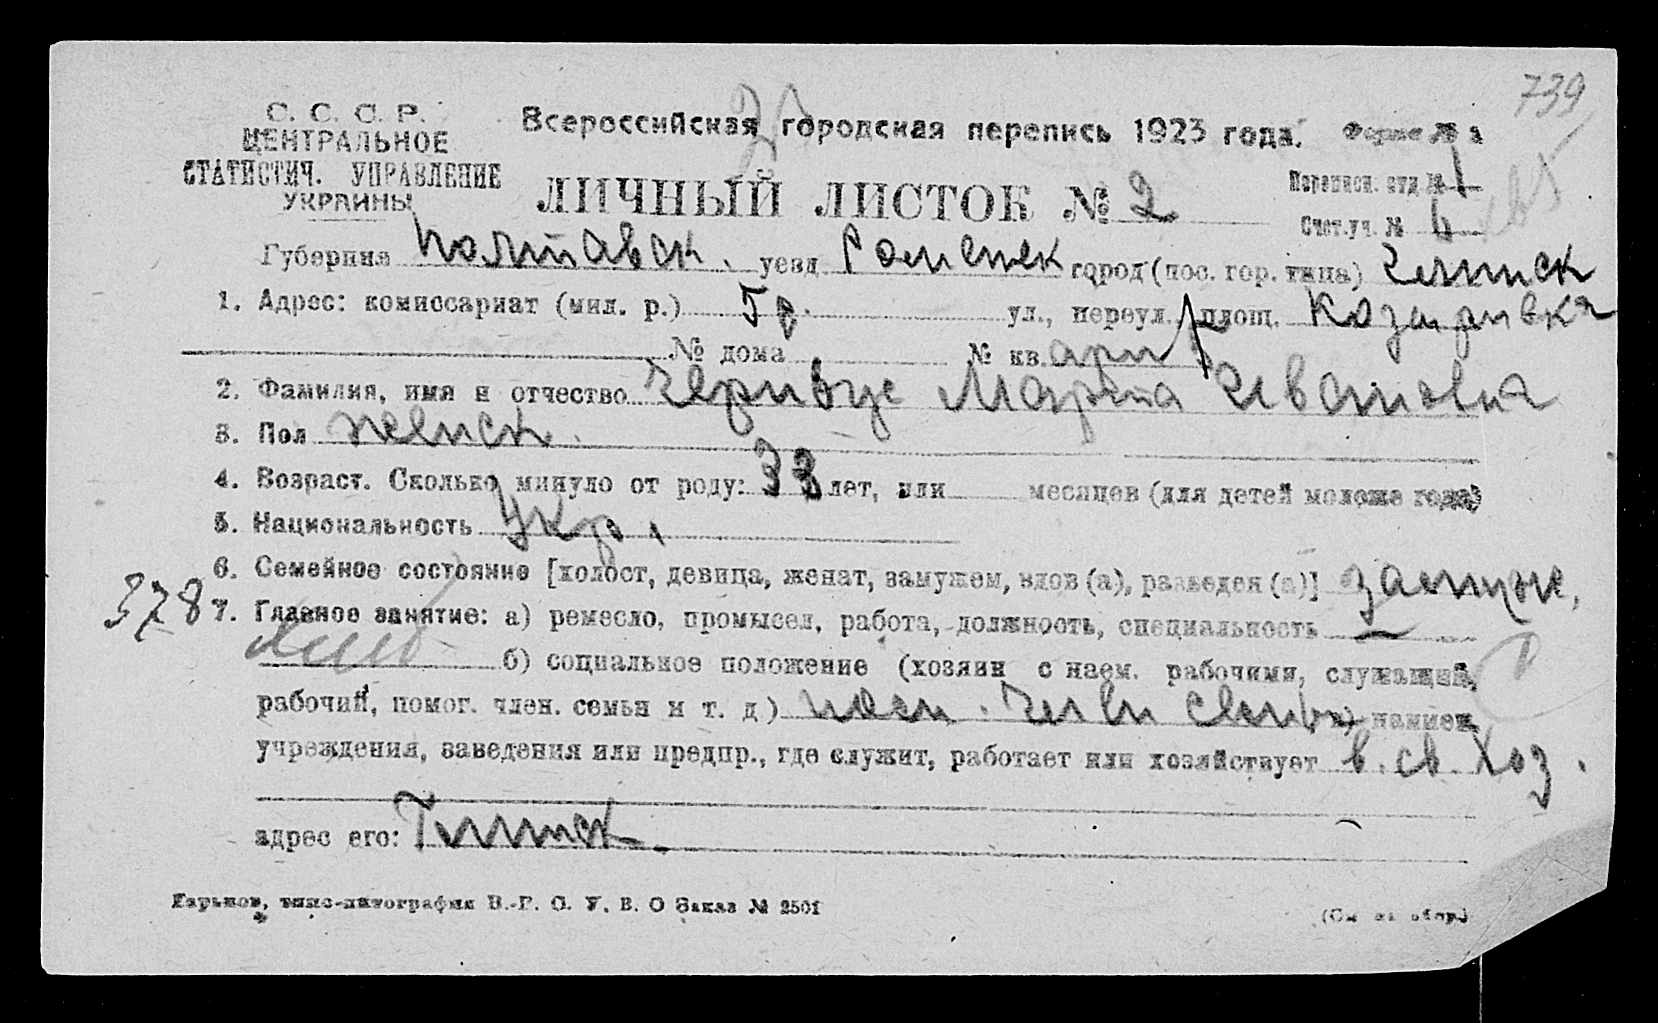 739
С. С. С. Р.
ЦЕНТРАЛЬНОЕ
СТАТИСТИЧ. УПРАВЛЕНИЕ
УКРАИНЫ
Всероссийская городская перепись 1923 года. Форма № 1
ЛИЧНЫЙ ЛИСТОК № 2
Переписн. отд №
Счет.уч. №
Губерния Полтавск. уезд Роменск город (пос. гор. типа) Глинск
1. Адрес: комиссариат (мил. р.) 5 р. ул., переул., площ.
№ дома № кв.
2. Фамилия, имя и отчество Марфа Ивановна
3. Пол женск.
4. Возраст. Сколько минуло от роду: 33 лет, или месяцев (для детей моложе года)
5. Национальность Укр.
6. Семейное состояние [холост, девица, женат, замужем, вдов (а), разведен (а)] замуж.
378
7. Главное занятие: а) ремесло, промысел, работа, должность, специальность —
б) социальное положение (хозяин с наем. рабочими, служащий,
рабочий, помог. член. семьи и т. д.) пом. член семьи в) наимен.
учреждения, заведения или предпр., где служит, работает или хозяйствует в св. хоз.
адрес его: Глинск.
Харьков, типо-литография В.-Р. О. У. В. О Заказ № 2501
(См на обор.)